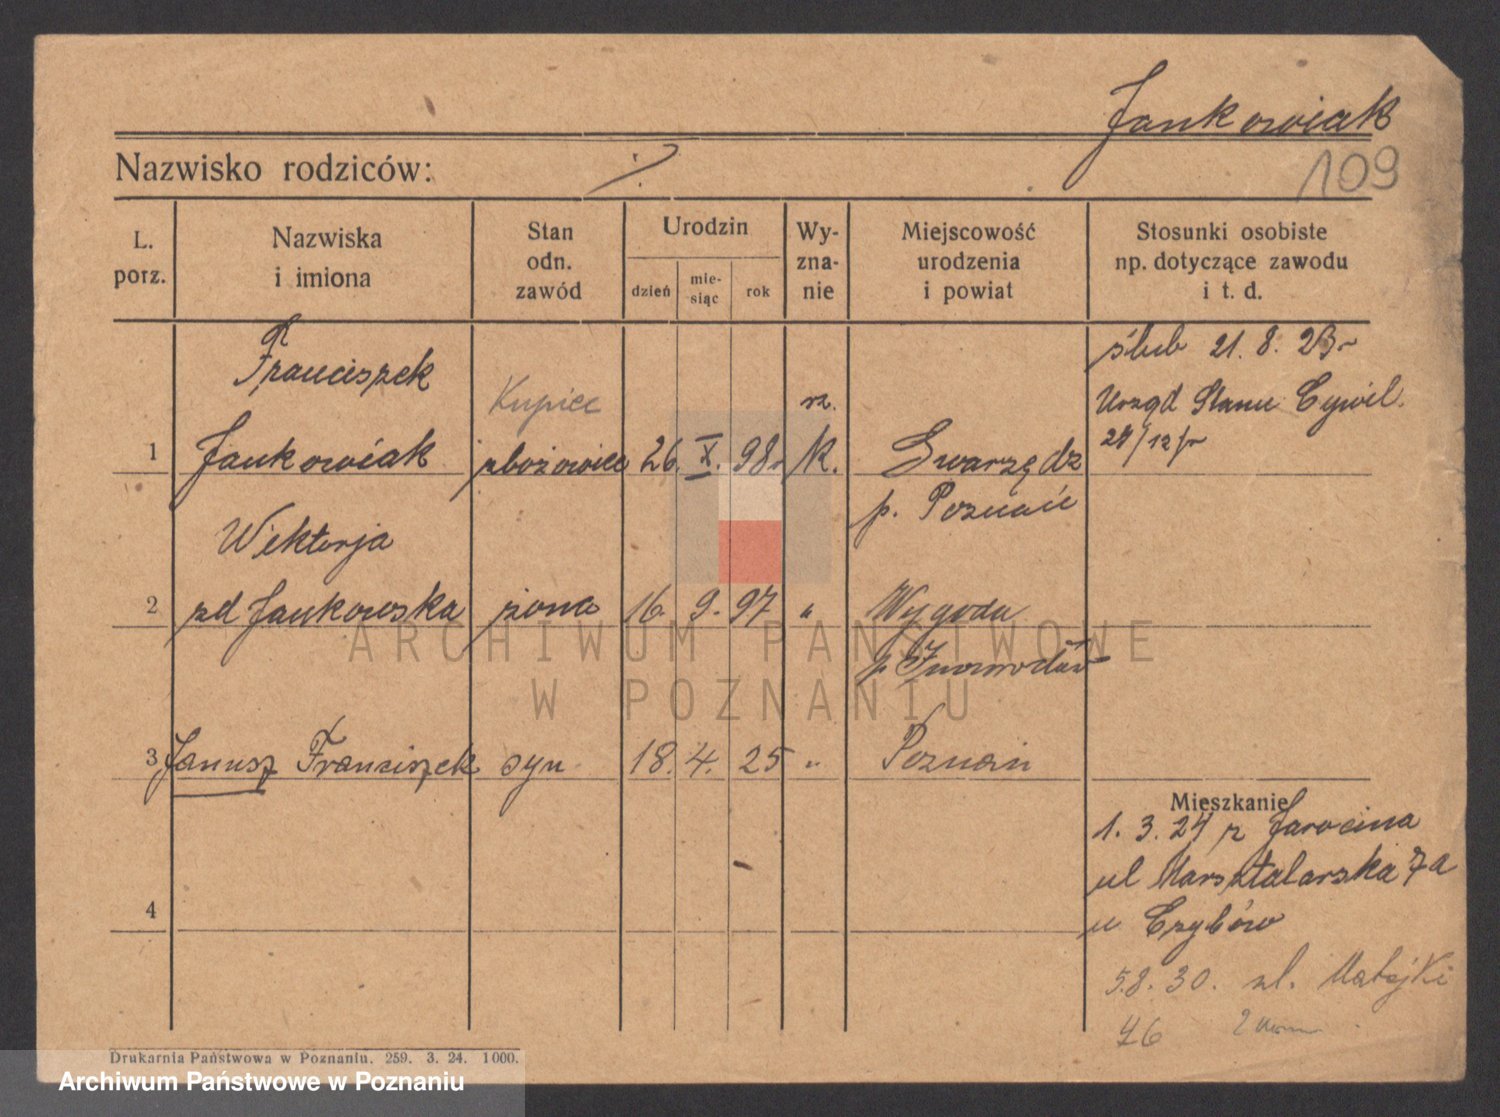 Jankowiak
109
Nazwisko rodziców: ./.
L. porz.
Nazwiska i imiona
Stan odn. zawód
Urodzin
dzień
mie-siąc
rok
Wy-zna-nie
Miejscowość urodzenia i powiat
Stosunki osobiste np. dotyczące zawodu i t. d.
Franciszek
1 Jankowiak
Kupiec
zbożowiec
26. X. 98r
rz.
k.
Swarzędz
p. Poznań
ślub 21. 8. 23r
Urząd Stanu Cywil.
27/12/r
Wiktorja
2 zd Jankowska żona 16. 9. 97 " Wygoda
p. Inowrocław
3 Janusz Franciszek syn 18. 4. 25 " Poznań
4
Mieszkanie
1. 3. 24 z Jarocina
ul Marsztalarska 7a
u Grzybów
5.8.30. ul. Matejki
46
Drukarnia Państwowa w Poznaniu. 259. 3. 24. 1000.
ARCHIWUM PAŃSTWOWE
W POZNANIU
Archiwum Państwowe w Poznaniu